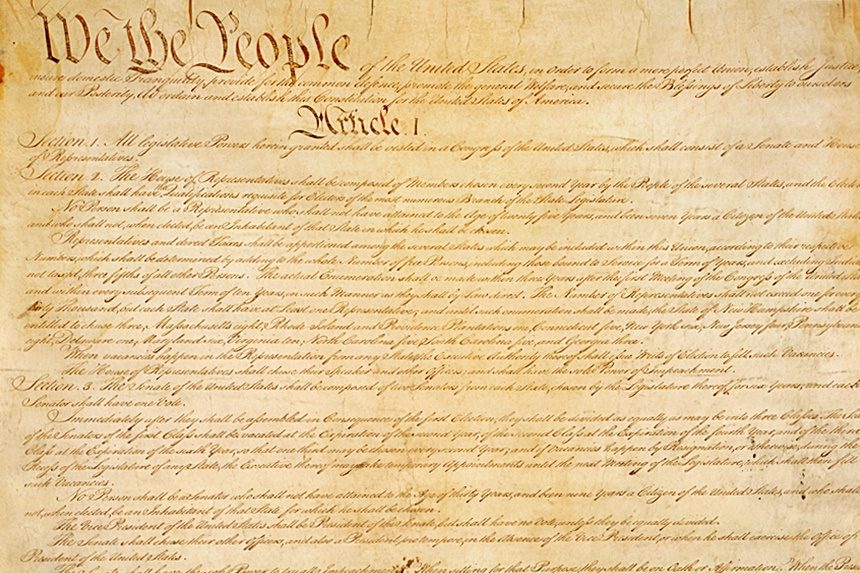 We the People of the United States, in Order to form a more perfect Union, establish Justice,
insure domestic Tranquility, provide for the common defence, promote the general Welfare, and secure the Blessings of Liberty to ourselves
and our Posterity, do ordain and establish this Constitution for the United States of America.
Article. I.
Section. 1. All legislative Powers herein granted shall be vested in a Congress of the United States, which shall consist of a Senate and House
of Representatives.
Section. 2. The House of Representatives shall be composed of Members chosen every second Year by the People of the several States, and the
in each State shall have Qualifications requisite for Electors of the most numerous Branch of the State Legislature.
No Person shall be a Representative who shall not have attained to the Age of twenty five Years, and been seven Years a Citizen of the United
and who shall not, when elected, be an Inhabitant of that State in which he shall be chosen.
Representatives and direct Taxes shall be apportioned among the several States which may be included within this Union, according to their respective
Numbers, which shall be determined by adding to the whole Number of free Persons, including those bound to Service for a Term of Years, and excluding
not taxed, three fifths of all other Persons. The actual Enumeration shall be made within three Years after the first Meeting of the Congress of the United
and within every subsequent Term of ten Years, in such Manner as they shall by Law direct. The Number of Representatives shall not exceed one for every
thirty Thousand, but each State shall have at Least one Representative; and until such enumeration shall be made, the State of New Hampshire shall be
entitled to chuse three, Massachusetts eight, Rhode Island and Providence Plantations one, Connecticut five, New York six, New Jersey four, Pennsylvania
eight, Delaware one, Maryland six, Virginia ten, North Carolina five, South Carolina five, and Georgia three.
When vacancies happen in the Representation from any State, the Executive Authority thereof shall issue Writs of Election to fill such Vacancies.
The House of Representatives shall chuse their Speaker and other Officers; and shall have the sole Power of Impeachment.
Section. 3. The Senate of the United States shall be composed of two Senators from each State, chosen by the Legislature thereof, for six Years; and each
Senator shall have one Vote.
Immediately after they shall be assembled in Consequence of the first Election, they shall be divided as equally as may be into three Classes. The
of the Senators of the first Class shall be vacated at the Expiration of the second Year, of the second Class at the Expiration of the fourth Year, and of the third
Class at the Expiration of the sixth Year, so that one third may be chosen every second Year; and if Vacancies happen by Resignation, or otherwise, during the
Recess of the Legislature of any State, the Executive thereof may make temporary Appointments until the next Meeting of the Legislature, which shall then fill
such Vacancies.
No Person shall be a Senator who shall not have attained to the Age of thirty Years, and been nine Years a Citizen of the United States, and who shall
not, when elected, be an Inhabitant of that State for which he shall be chosen.
The Vice President of the United States shall be President of the Senate, but shall have no Vote, unless they be equally divided.
The Senate shall chuse their other Officers, and also a President pro tempore, in the Absence of the Vice President, or when he shall exercise the Office of
President of the United States.
The Senate shall have the sole Power to try all Impeachments. When sitting for that Purpose, they shall be on Oath or Affirmation. When the